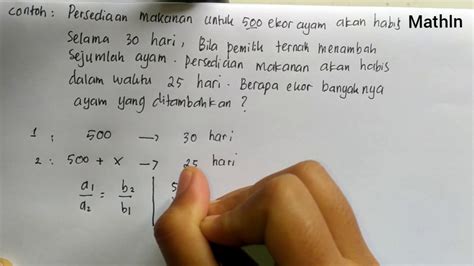 Contoh : Persediaan makanan untuk 500 ekor ayam akan habis
MathIn
selama 30 hari, Bila pemilik ternak menambah
sejumlah ayam. persediaan makanan akan habis
dalam waktu 25 hari. Berapa ekor banyaknya
ayam yang ditambahkan ?
1 : 500 → 30 hari
2 : 500 + x → 25 hari
a1/a2 = b2/b1